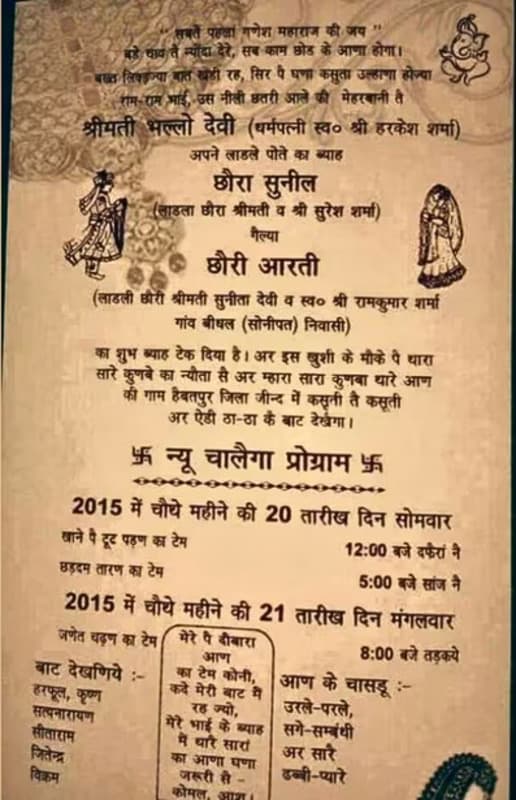 " सबतै पहलां गणेश महाराज की जय "
बड़े चाव तै न्यौंदा देरे, सब काम छोड के आणा होगा।
बख्त लिकड़ग्या बात खड़ी रह, सिर पै घणा कसुता उल्हाणा होज्या
राम-राम भाई, उस नीली छतरी आले की मेहरबानी तै
श्रीमती भल्लो देवी (धर्मपत्नी स्व० श्री हरकेश शर्मा)
अपने लाडले पोते का ब्याह
छौरा सुनील
(लाडला छौरा श्रीमती व श्री सुरेश शर्मा)
गैल्या
छौरी आरती
(लाडली छौरी श्रीमती सुनीता देवी व स्व० श्री रामकुमार शर्मा
गांव बीधल (सोनीपत) निवासी)
का शुभ ब्याह टेक दिया है। अर इस खुशी के मौके पै थारा
सारे कुणबे का न्यौता सै अर म्हारा सारा कुणबा थारे आण
की गाम हैबतपुर जिला जीन्द में कसूती तै कसूती
अर ऐडी ठा-ठा कै बाट देखैगा।
卐 न्यू चालैगा प्रोग्राम 卐
2015 में चौथे महीने की 20 तारीख दिन सोमवार
खाने पै टूट पड़ण का टेम 12:00 बजे दफैरां नै
छड़दम तारण का टेम 5:00 बजे सांज नै
2015 में चौथे महीने की 21 तारीख दिन मंगलवार
जणेत चढ़ण का टेम 8:00 बजे तड़कये
बाट देखणिये :-
हरफूल, कृष्ण
सत्यनारायण
सीताराम
जितेन्द्र
विक्रम
मेरे पै दोबारा
आण
का टेम कोनी,
कदे मेरी बाट मैं
रह ज्यो,
मेरे भाई के ब्याह
में थारै सारां
का आणा घणा
जरूरी सै -
कोमल, आशु।
आण के चासडू :-
उरले-परले,
सगे-सम्बंधी
अर सारै
ढब्बी-प्यारे